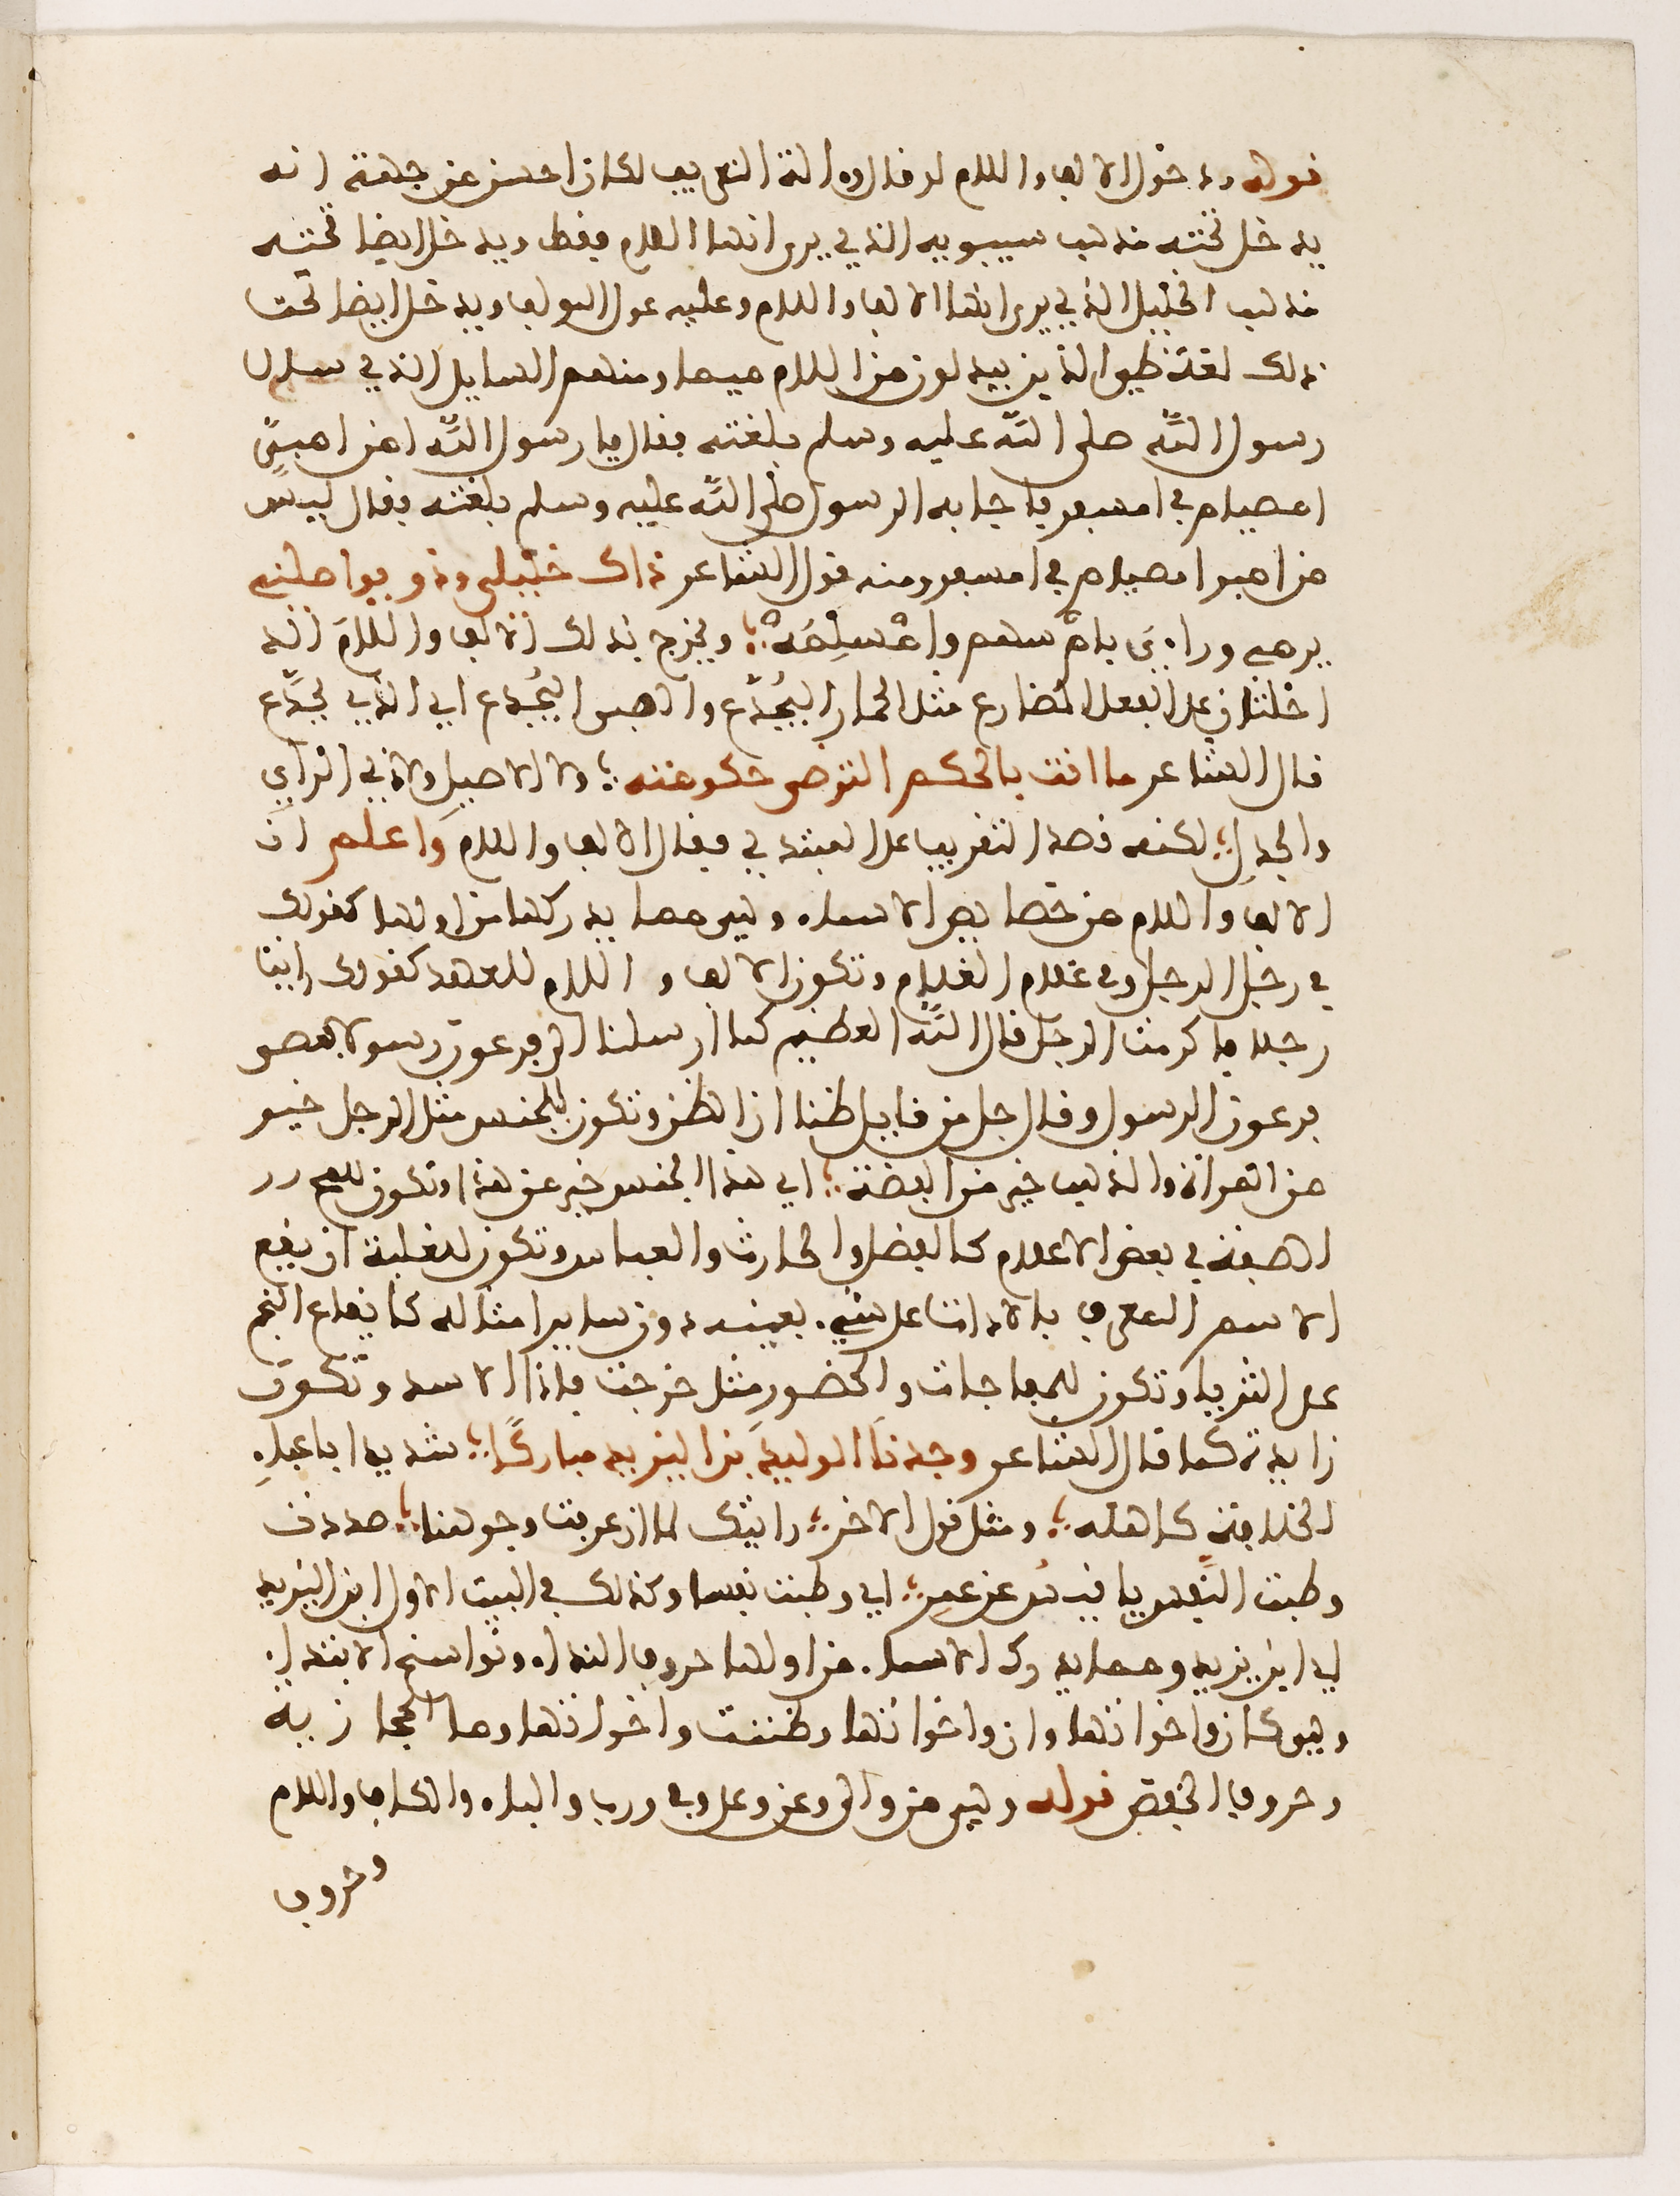 قوله ودخول الالف واللام لو قال واداة التعريف لكان احسن من جهة انه
يدخل تحته مذهب سيبويه الذي يرى انها اللام فقط ويدخل ايضا تحته
مذهب الخليل الذي يرى انها الالف واللام وعليه عول المولف ويدخل ايضا تحت
ذلك لغة طيء الذين يبدلون من اللام ميما ومنهم السايل الذي سال
رسول الله صلى الله عليه وسلم بلغته فقال يا رسول الله امن امبر
امصيام في امسفر فاجابه الرسول صلى الله عليه وسلم بلغته فقال ليس
من امبر امصيام في امسفر ومنه قول الشاعر ذاك خليلي وذو يواصلني
يرمي وراءي بامْسهم وامْسلِمَهْ ؛ ويخرج بذلك الالف واللام الد
اخلتان على الفعل المضارع مثل الحمار اليُجَدّع والصبى اليُجدع اي الذي يُجدَّع
قال الشاعر ما انت بالحكم الترضى حكومته ؛ ولا الاصيل ولا ذي الراي
والجدل ؛ لكنه قصد التقريب على المبتدي فقال الالف واللام واعلم ان
الالف واللام من خصايص الاسماء وهي مما يدركها من اولها كقولك
في رجل الرجل وفي غلام الغلام وتكون الالف واللام للعهد كقولك راينا
رجلا فاكرمت الرجل قال الله العظيم كما ارسلنا الى فرعون رسولا فعصى
فرعون الرسول وقال جل من قايل ظنا ان الظن وتكون للجنس مثل الرجل خير
من المراة والذهب خير من الفضة ؛ اي هذا الجنس خير من هذا وتكون للمح
الصفة في بعض الاعلام كالفضل والحارث والعباس وتكون للغلبة ان يقع
الاسم المعرف بالاداة على شيء بعينه دون ساير امثاله كايقاع النجم
على الثريا وتكون للمفاجات والحضور مثل خرجت فاذا الاسد وتكون
زايدة كما قال الشاعر وجدنا الوليد بن اليزيد مباركًا ؛ شديدا باعباءِ
الخلافة كاهله ؛ ومثل قول الاخر ؛ رايتك لما ان عرفت وجوهنا ؛ صددت
وطبت النَّفس يا قيسُ عن عمرِ ؛ اي وطبت نفسا وكذلك في البيت الاول ابن اليزيد
اي ابن يزيد ومما يدرك الاسماء من اولها حروف النداء ونواسخ الابتداء
وهي كان واخواتها وان واخواتها وظننت واخواتها وما الحجازية
وحروف الخفض قوله وهي من والى وعن وعلى وفي ورب والباء والكاف واللام
وحروف